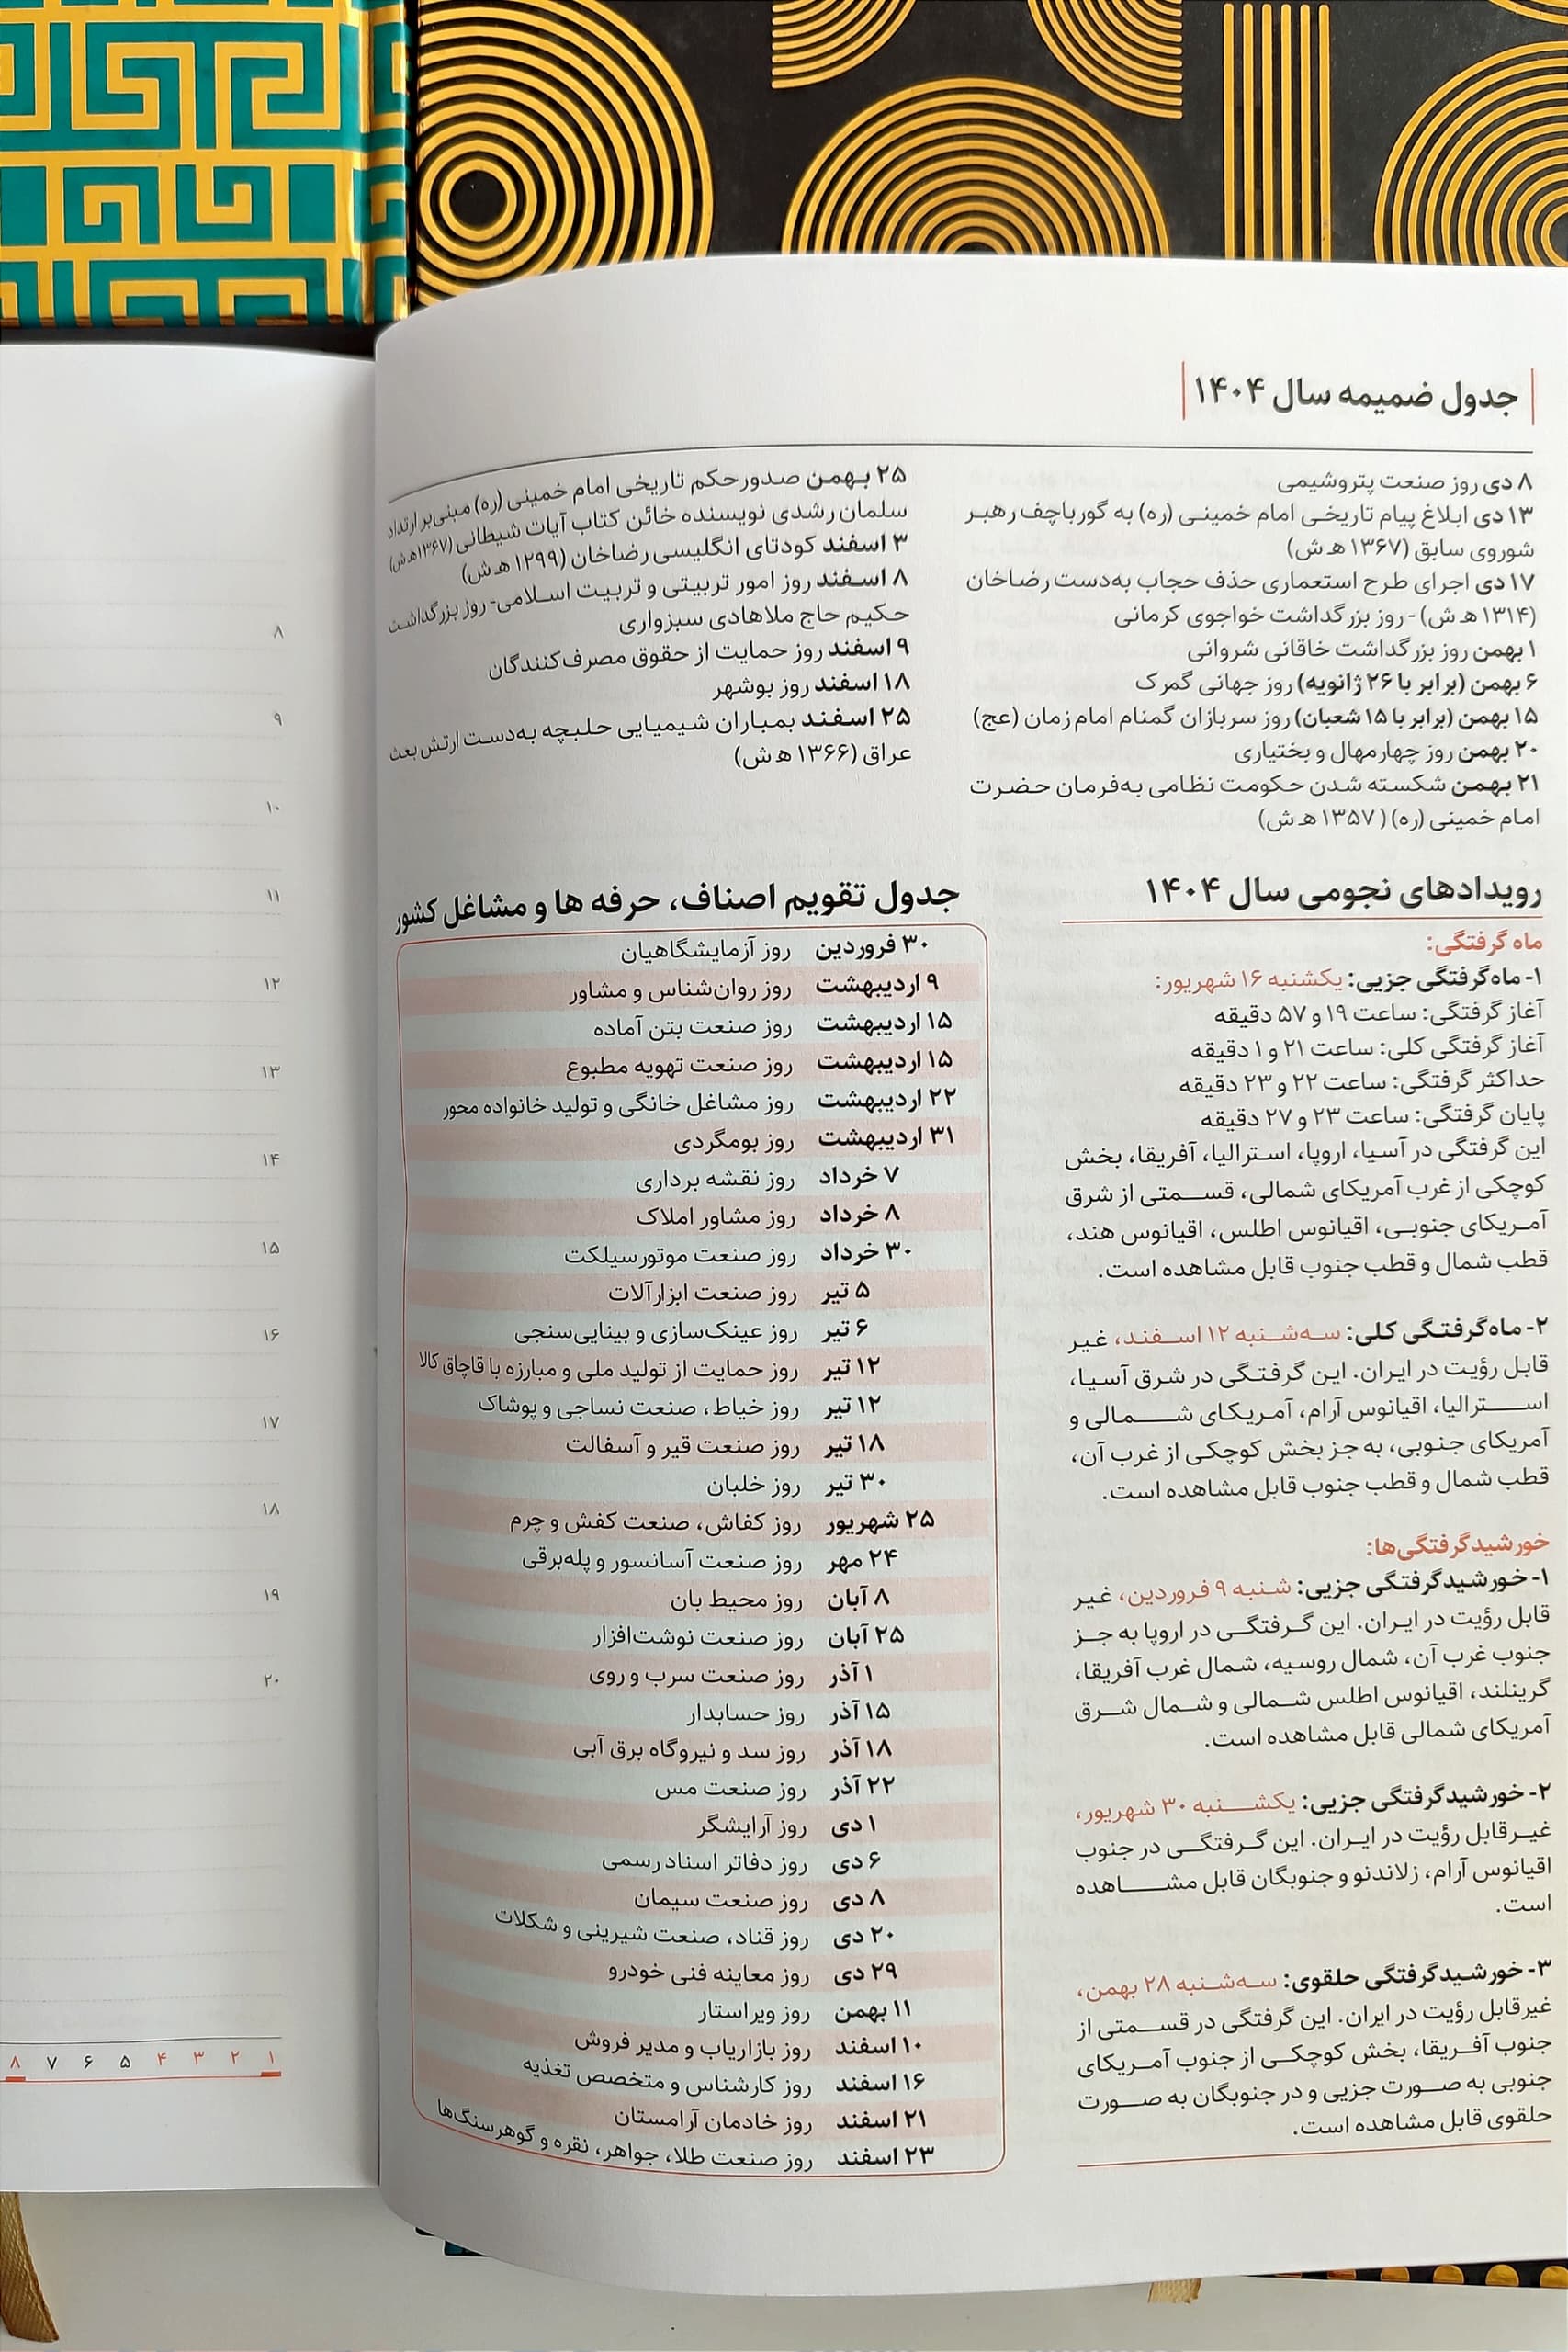 جدول ضمیمه سال ۱۴۰۴
۸ دی روز صنعت پتروشیمی
۱۳ دی ابلاغ پیام تاریخی امام خمینی (ره) به گورباچف رهبر
شوروی سابق (۱۳۶۷ ه‍ ش)
۱۷ دی اجرای طرح استعماری حذف حجاب به‌دست رضاخان
(۱۳۱۴ ه‍ ش) - روز بزرگداشت خواجوی کرمانی
۱ بهمن روز بزرگداشت خاقانی شروانی
۶ بهمن (برابر با ۲۶ ژانویه) روز جهانی گمرک
۱۵ بهمن (برابر با ۱۵ شعبان) روز سربازان گمنام امام زمان (عج)
۲۰ بهمن روز چهارمهال و بختیاری
۲۱ بهمن شکسته شدن حکومت نظامی به‌فرمان حضرت
امام خمینی (ره) (۱۳۵۷ ه‍ ش)
۲۵ بهمن صدور حکم تاریخی امام خمینی (ره) مبنی‌بر ارتداد
سلمان رشدی نویسنده خائن کتاب آیات شیطانی (۱۳۶۷ ه‍ ش)
۳ اسفند کودتای انگلیسی رضاخان (۱۲۹۹ ه‍ ش)
۸ اسفند روز امور تربیتی و تربیت اسلامی- روز بزرگداشت
حکیم حاج ملاهادی سبزواری
۹ اسفند روز حمایت از حقوق مصرف‌کنندگان
۱۸ اسفند روز بوشهر
۲۵ اسفند بمباران شیمیایی حلبچه به‌دست ارتش بعث
عراق (۱۳۶۶ ه‍ ش)
رویدادهای نجومی سال ۱۴۰۴
ماه گرفتگی:
۱- ماه‌گرفتگی جزیی: یکشنبه ۱۶ شهریور:
آغاز گرفتگی: ساعت ۱۹ و ۵۷ دقیقه
آغاز گرفتگی کلی: ساعت ۲۱ و ۱ دقیقه
حداکثر گرفتگی: ساعت ۲۲ و ۲۳ دقیقه
پایان گرفتگی: ساعت ۲۳ و ۲۷ دقیقه
این گرفتگی در آسیا، اروپا، استرالیا، آفریقا، بخش
کوچکی از غرب آمریکای شمالی، قسمتی از شرق
آمریکای جنوبی، اقیانوس اطلس، اقیانوس هند،
قطب شمال و قطب جنوب قابل مشاهده است.
۲- ماه‌گرفتگی کلی: سه‌شنبه ۱۲ اسفند، غیر
قابل رؤیت در ایران. این گرفتگی در شرق آسیا،
استرالیا، اقیانوس آرام، آمریکای شمالی و
آمریکای جنوبی، به جز بخش کوچکی از غرب آن،
قطب شمال و قطب جنوب قابل مشاهده است.
خورشیدگرفتگی‌ها:
۱- خورشیدگرفتگی جزیی: شنبه ۹ فروردین، غیر
قابل رؤیت در ایران. این گرفتگی در اروپا به جز
جنوب غرب آن، شمال روسیه، شمال غرب آفریقا،
گرینلند، اقیانوس اطلس شمالی و شمال شرق
آمریکای شمالی قابل مشاهده است.
۲- خورشیدگرفتگی جزیی: یکشنبه ۳۰ شهریور،
غیرقابل رؤیت در ایران. این گرفتگی در جنوب
اقیانوس آرام، زلاندنو و جنوبگان قابل مشاهده
است.
۳- خورشیدگرفتگی حلقوی: سه‌شنبه ۲۸ بهمن،
غیرقابل رؤیت در ایران. این گرفتگی در قسمتی از
جنوب آفریقا، بخش کوچکی از جنوب آمریکای
جنوبی به صورت جزیی و در جنوبگان به صورت
حلقوی قابل مشاهده است.
جدول تقویم اصناف، حرفه ها و مشاغل کشور
۳۰ فروردین روز آزمایشگاهیان
۹ اردیبهشت روز روان‌شناس و مشاور
۱۵ اردیبهشت روز صنعت بتن آماده
۱۵ اردیبهشت روز صنعت تهویه مطبوع
۲۲ اردیبهشت روز مشاغل خانگی و تولید خانواده محور
۳۱ اردیبهشت روز بومگردی
۷ خرداد روز نقشه برداری
۸ خرداد روز مشاور املاک
۳۰ خرداد روز صنعت موتورسیلکت
۵ تیر روز صنعت ابزارآلات
۶ تیر روز عینک‌سازی و بینایی‌سنجی
۱۲ تیر روز حمایت از تولید ملی و مبارزه با قاچاق کالا
۱۲ تیر روز خیاط، صنعت نساجی و پوشاک
۱۸ تیر روز صنعت قیر و آسفالت
۳۰ تیر روز خلبان
۲۵ شهریور روز کفاش، صنعت کفش و چرم
۲۴ مهر روز صنعت آسانسور و پله‌برقی
۸ آبان روز محیط بان
۲۵ آبان روز صنعت نوشت‌افزار
۱ آذر روز صنعت سرب و روی
۱۵ آذر روز حسابدار
۱۸ آذر روز سد و نیروگاه برق آبی
۲۲ آذر روز صنعت مس
۱ دی روز آرایشگر
۶ دی روز دفاتر اسناد رسمی
۸ دی روز صنعت سیمان
۲۰ دی روز قناد، صنعت شیرینی و شکلات
۲۹ دی روز معاینه فنی خودرو
۱۱ بهمن روز ویراستار
۱۰ اسفند روز بازاریاب و مدیر فروش
۱۶ اسفند روز کارشناس و متخصص تغذیه
۲۱ اسفند روز خادمان آرامستان
۲۳ اسفند روز صنعت طلا، جواهر، نقره و گوهرسنگ‌ها
۸
۹
۱۰
۱۱
۱۲
۱۳
۱۴
۱۵
۱۶
۱۷
۱۸
۱۹
۲۰
۱ ۲ ۳ ۴ ۵ ۶ ۷ ۸